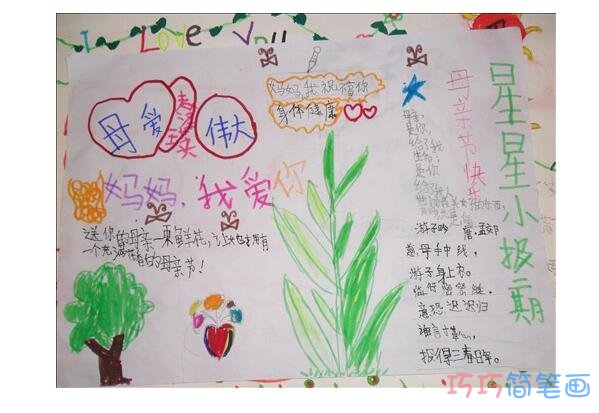 I Love You
母爱
伟大
妈妈,我祝愿你
身体健康
妈妈,我爱你
送你的母亲一束鲜花,让她拥有
一个充满花香的母亲节!
母亲节快乐
是你,
给了我
生命;
是你
给了我
游子吟 孟郊
慈母手中线,
游子身上衣。
临行密密缝,
意恐迟迟归
谁言寸草心,
报得三春晖。
星星小报
巧巧简笔画